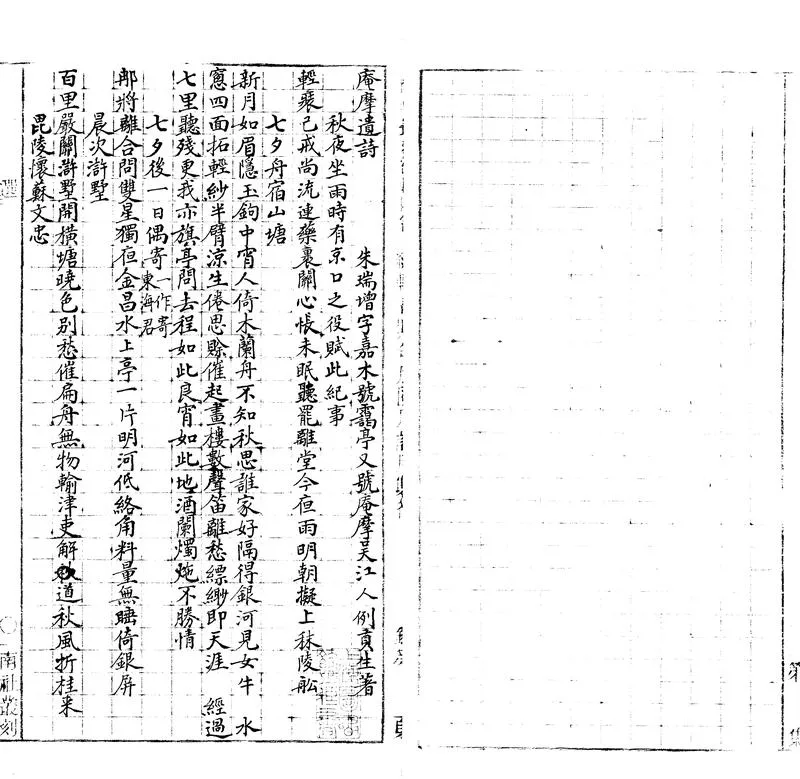 庵摩遺詩 朱瑞增字嘉木號靄亭又號庵摩吳江人例貢生著
秋夜坐雨時有京口之役賦此紀事
輕裘已戒尚流連藥裹關心悵未眠聽罷離堂今夜雨明朝擬上秣陵舩
七夕舟宿山塘
新月如眉隱玉鉤中宵人倚木蘭舟不知秋思誰家好隔得銀河見女牛 水
窻四面拓輕紗半臂涼生倦思賒催起畫樓數聲笛離愁縹緲即天涯 經過
七里聽殘更我亦旗亭問去程如此良宵如此地酒闌燭灺不勝情
七夕後一日偶寄一作寄東海君
那將離合問雙星獨夜金昌水上亭一片明河低絡角料量無睡倚銀屏
晨次滸墅
百里嚴關滸墅開橫塘曉色别愁催扁舟無物輸津吏解道秋風折桂來
毘陵懷蘇文忠
南社叢刻
第 集